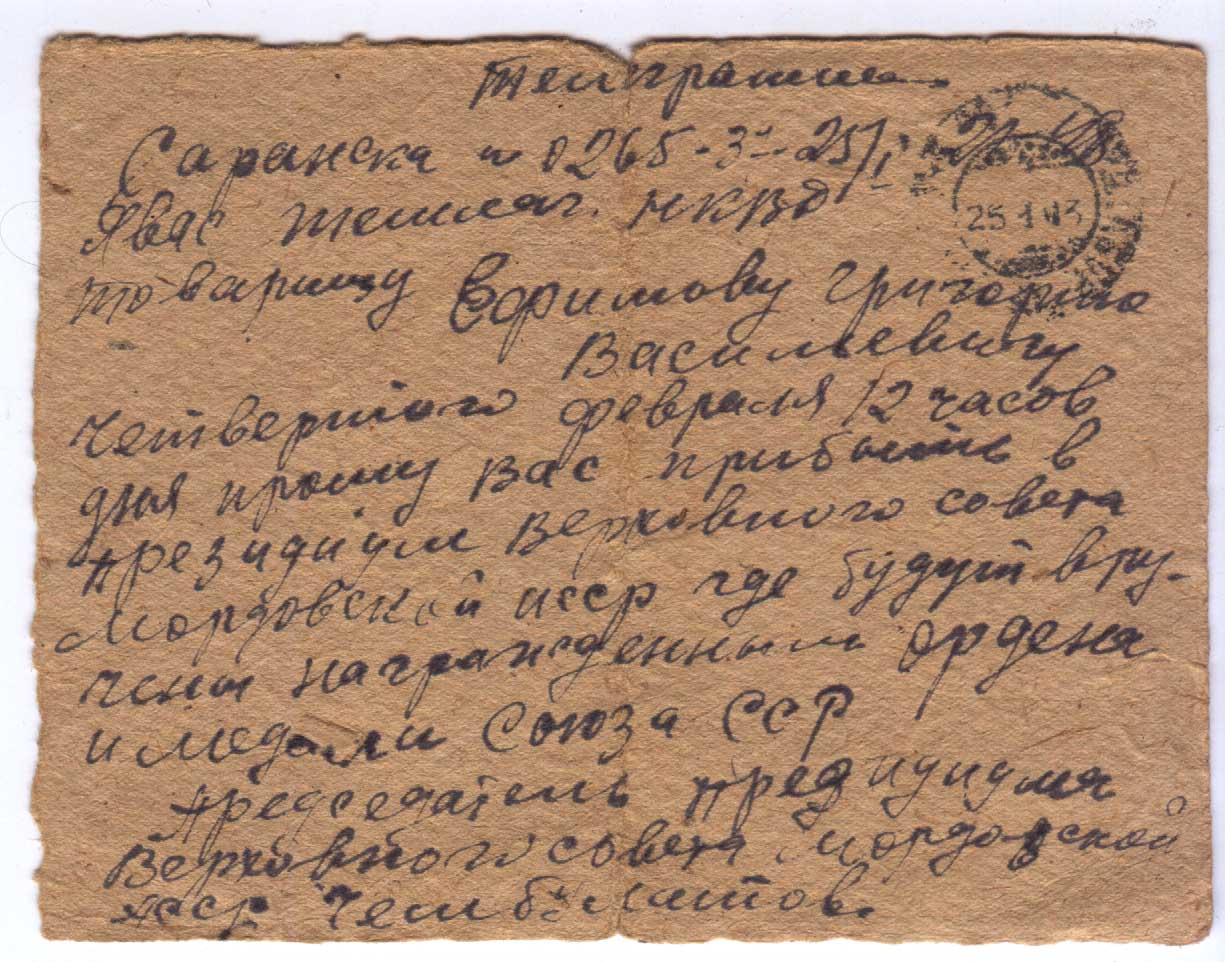 Телеграмма
Саранска н 0265-3-25/1 21
Явас Темлаг НКВД
25 1 43
товарищу Ефимову Григорию
Васильевичу
Четвертого февраля 12 часов
дня прошу Вас прибыть в
президиум Верховного совета
Мордовской АССР где будут вру-
чены награжденным ордена
и медали Союза ССР
Председатель президиума
Верховного совета Мордовской
АССР Чембулатов.